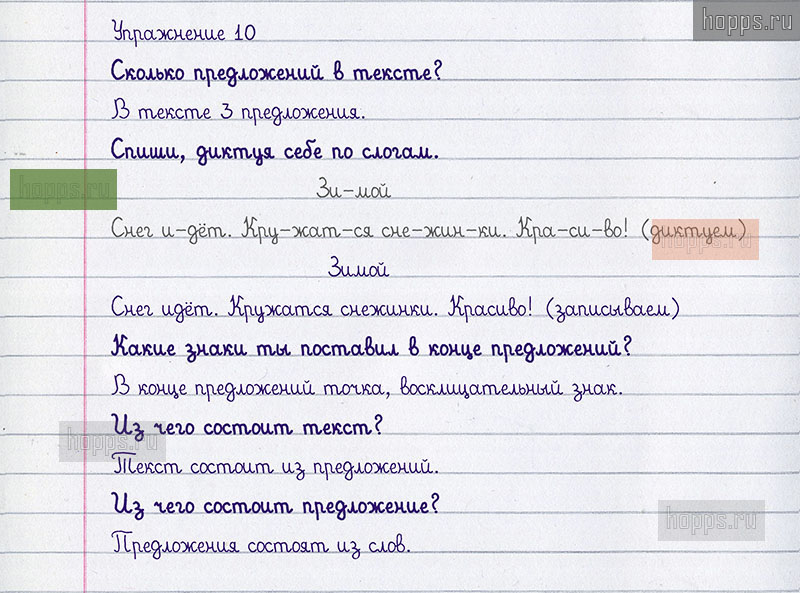 hopps.ru
Упражнение 10
Сколько предложений в тексте?
В тексте 3 предложения.
Спиши, диктуя себе по слогам.
hopps.ru
Зи-мой
Снег и-дёт. Кру-жат-ся сне-жин-ки. Кра-си-во! (диктуем)
hopps.ru
Зимой
Снег идёт. Кружатся снежинки. Красиво! (записываем)
Какие знаки ты поставил в конце предложений?
В конце предложений точка, восклицательный знак.
Из чего состоит текст?
hopps.ru
Текст состоит из предложений.
Из чего состоит предложение?
hopps.ru
Предложения состоят из слов.